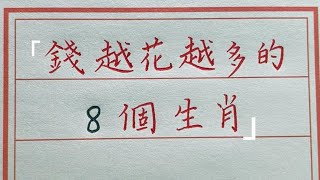 「錢越花越多的
8個生肖」